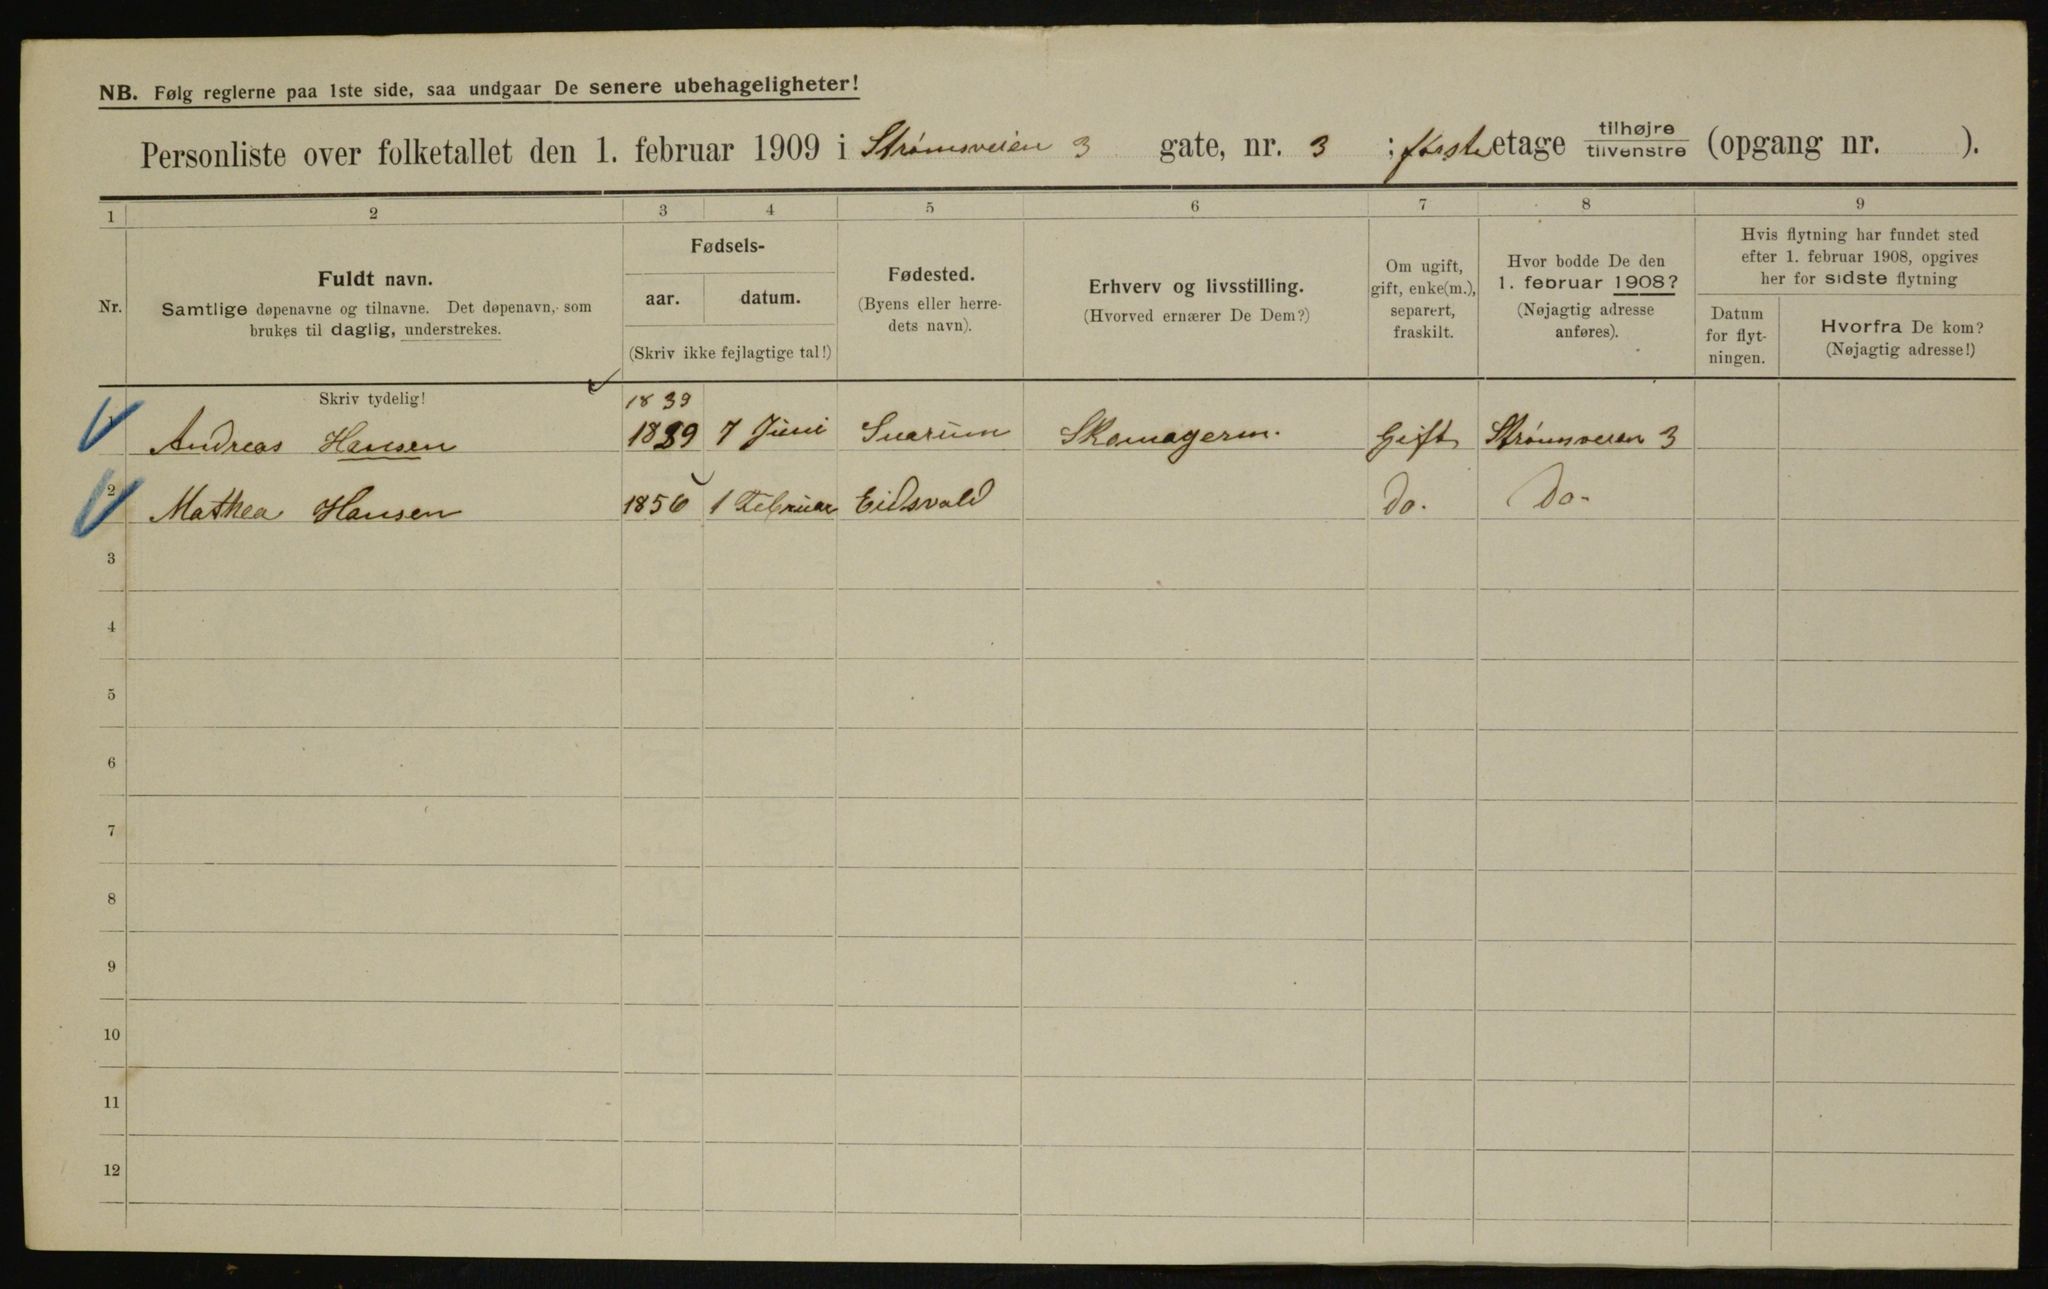 NB. Følg reglerne paa 1ste side, saa undgaar De senere ubehageligheter!
Personliste over folketallet den 1. februar 1909 i Strømsveien 3 gate, nr. 3 ; første etage tilhøjre/tilvenstre (opgang nr. ).
1 2 3 4 5 6 7 8 9
Nr.
Fuldt navn.
Samtlige døpenavne og tilnavne. Det døpenavn, som
brukes til daglig, understrekes.
Fødsels-
aar. datum.
(Skriv ikke fejlagtige tal!)
Fødested.
(Byens eller herre-
dets navn).
Erhverv og livsstilling.
(Hvorved ernærer De Dem?)
Om ugift,
gift, enke(m.),
separert,
fraskilt.
Hvor bodde De den
1. februar 1908?
(Nøjagtig adresse
anføres).
Hvis flytning har fundet sted
efter 1. februar 1908, opgives
her for sidste flytning
Datum
for flyt-
ningen.
Hvorfra De kom?
(Nøjagtig adresse!)
Skriv tydelig!
1839
1 Andreas Hansen 1839 7 Juni Snarum Skomagerm. Gift Strømsveien 3
2 Mathea Hansen 1856 1 Februar Eidsvold Do. Do-
3
4
5
6
7
8
9
10
11
12